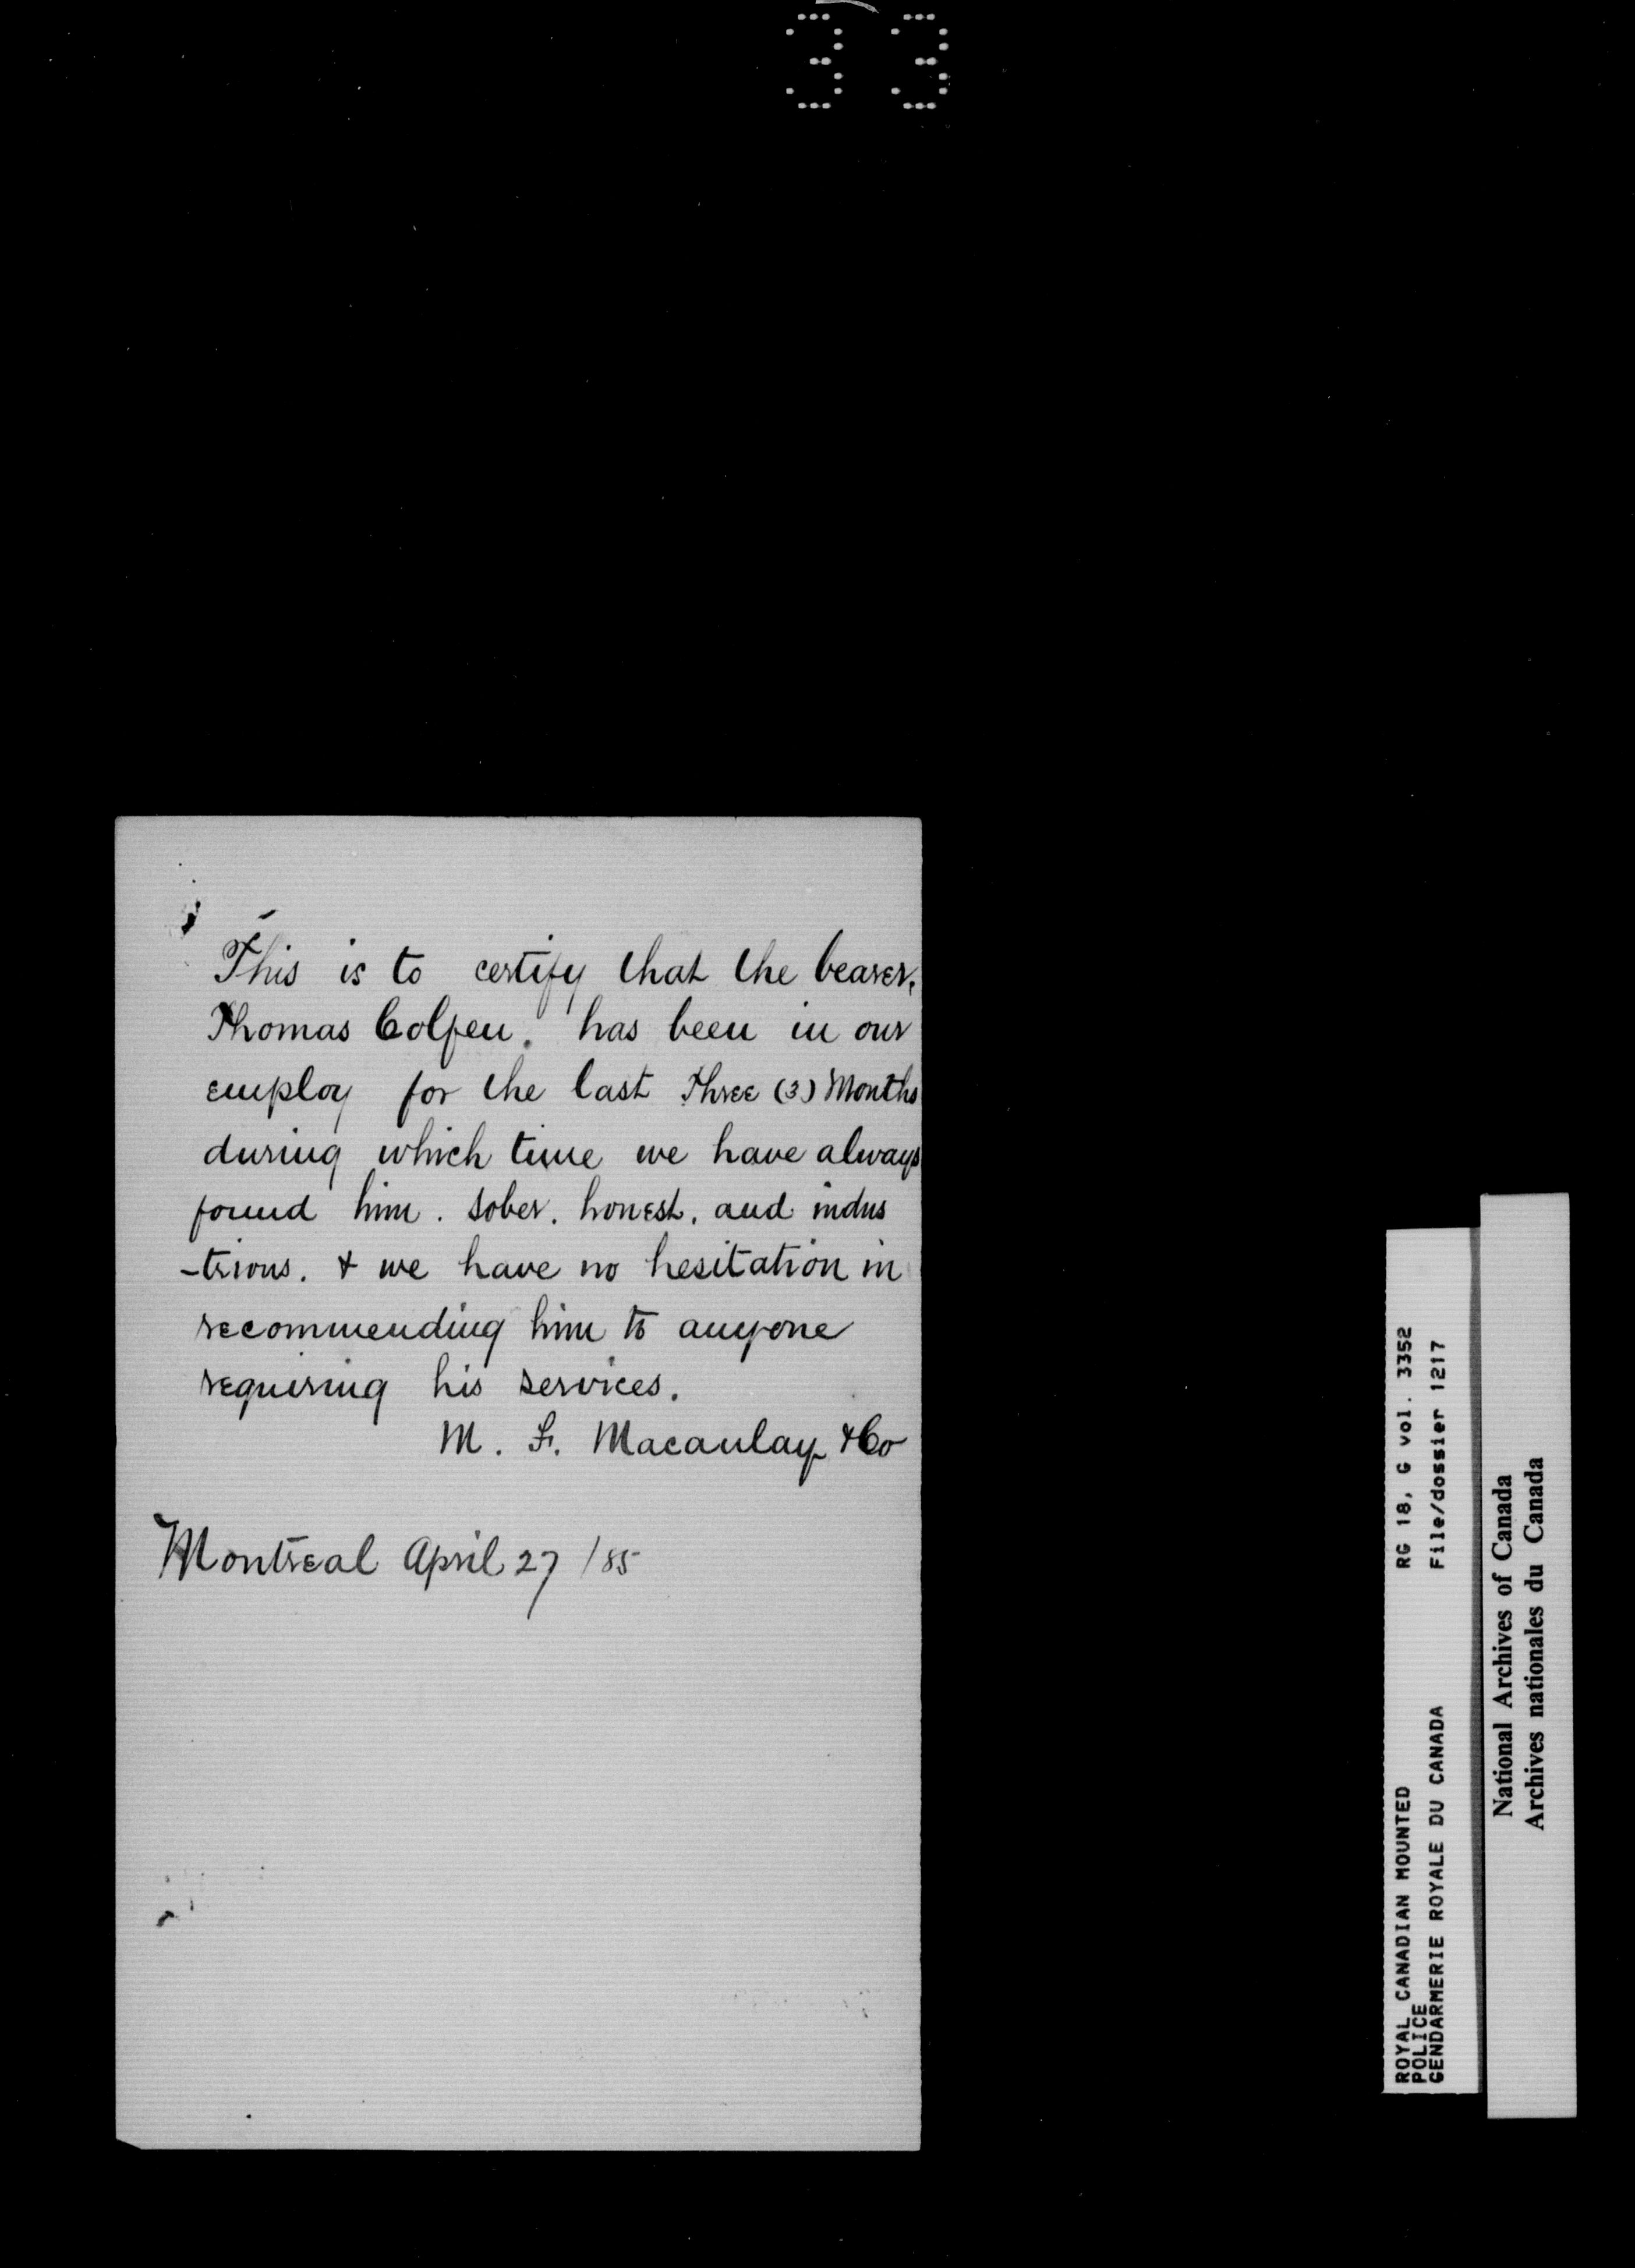 33
This is to certify that the bearer,
Thomas Colfen. has been in our
employ for the last Three (3) Months
during which time we have always
found him. sober. honest. and indus
-trious. & we have no hesitation in
recommending him to anyone
requiring his services.
M. F. Macaulay & Co
Montreal April 27 /85
ROYAL CANADIAN MOUNTED RG 18, G vol. 3352
POLICE
GENDARMERIE ROYALE DU CANADA File/dossier 1217
National Archives of Canada
Archives nationales du Canada